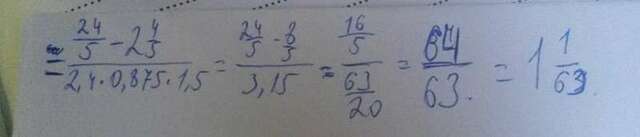 = (24/5 - 2 4/5)/(2,4·0,875·1,5) = (24/5 - 8/5)/3,15 = (16/5)/(63/20) = 64/63. = 1 1/63.